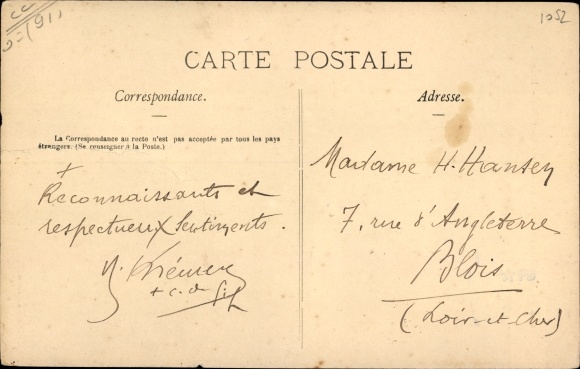 (91)
1052
CARTE POSTALE
Correspondance.
La Correspondance au recto n'est pas acceptée par tous les pays
étrangers. (Se renseigner à la Poste.)
+
Reconnaissants et
respectueux sentiments.
Adresse.
Madame H. Hansen
7, rue d'Angleterre
Blois
(Loir-et-Cher)